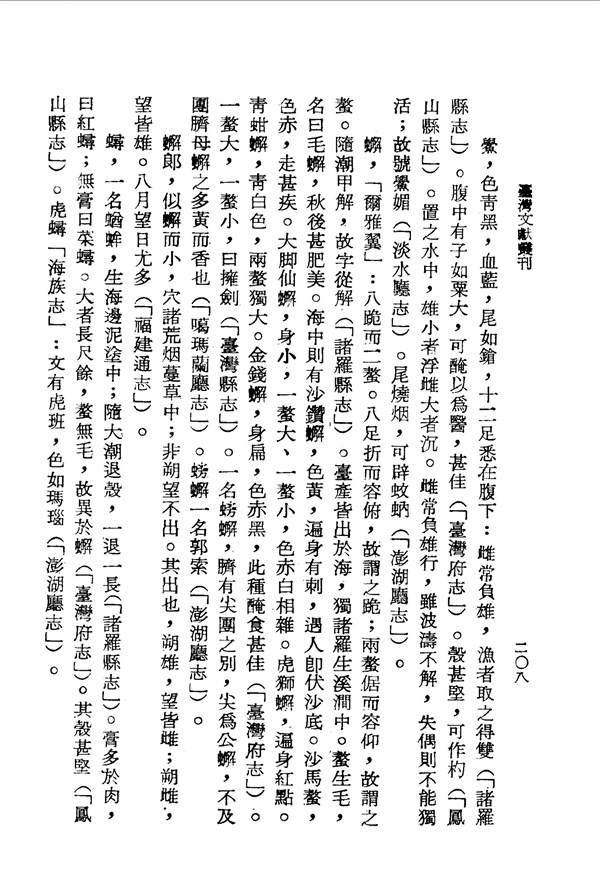 臺灣文獻叢刊
二〇八
鱟，色青黑，血藍，尾如鎗，十二足悉在腹下：雌常負雄，漁者取之得雙（「諸羅
縣志」）。腹中有子如粟大，可醃以爲醫，甚佳（「臺灣府志」）。殼甚堅，可作杓（「鳳
山縣志」）。置之水中，雄小者浮雌大者沉。雌常負雄行，雖波濤不解，失偶則不能獨
活；故號鱟媚（「淡水廳志」）。尾燒烟，可辟蚊蚋（「澎湖廳志」）。
蠏，「爾雅翼」：八跪而二螯。八足折而容俯，故謂之跪；兩螯倨而容仰，故謂之
螯。隨潮甲解，故字從解（「諸羅縣志」）。臺產皆出於海，獨諸羅生溪澗中。螯生毛，
名曰毛蠏，秋後甚肥美。海中則有沙鑽蠏，色黃，遍身有刺，遇人卽伏沙底。沙馬螯，
色赤，走甚疾。大脚仙蠏，身小，一螯大、一螯小，色赤白相雜。虎獅蠏，遍身紅點。
青蚶蠏，青白色，兩螯獨大。金錢蠏，身扁，色赤黑，此種醃食甚佳（「臺灣府志」）。
一螯大，一螯小，曰擁劍（「臺灣縣志」）。一名螃蠏，臍有尖團之別，尖爲公蠏，不及
團臍母蠏之多黃而香也（「噶瑪蘭廳志」）。螃蠏一名郭索（「澎湖廳志」）。
蠏郎，似蠏而小，穴諸荒烟蔓草中；非朔望不出。其出也，朔雄，望皆雌；朔雌，
望皆雄。八月望日尤多（「福建通志」）。
蟳，一名蝤蛑，生海邊泥塗中；隨大潮退殼，一退一長（「諸羅縣志」）。膏多於肉，
曰紅蟳；無膏曰菜蟳。大者長尺餘，螯無毛，故異於蠏（「臺灣府志」）。其殼甚堅（「鳳
山縣志」）。虎蟳「海族志」：文有虎班，色如瑪瑙（「澎湖廳志」）。